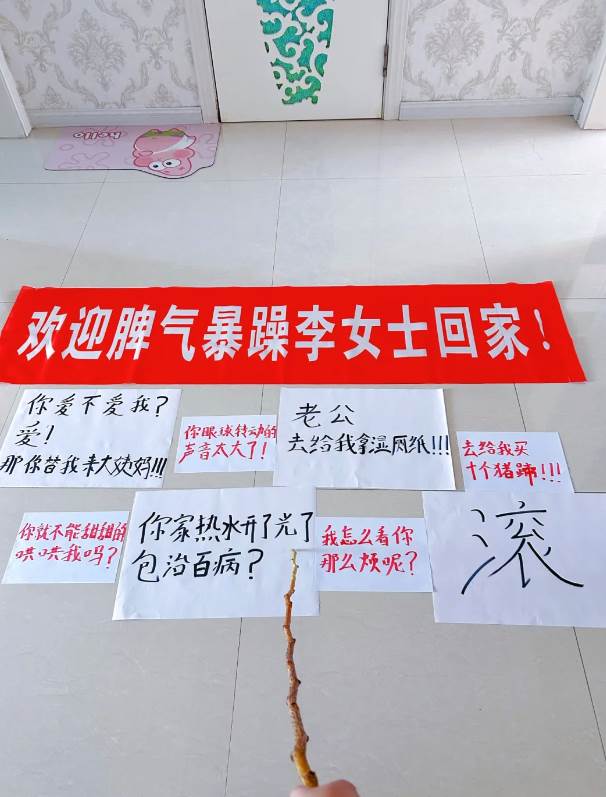 hello
欢迎脾气暴躁李女士回家！
你爱不爱我？
爱！
那你昔我来大姨妈!!!
你眼球转动的
声音太大了！
老公
去给我拿湿厕纸!!!
去给我买
十个猪蹄!!!
你就不能甜甜的
哄哄我吗？
你家热水开了光了
包治百病？
我怎么看你
那么烦呢？
滚